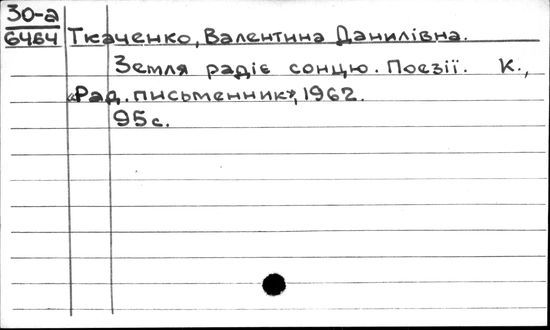 30-а
6464 Ткаченко, Валентина Данилівна.
Земля радіє сонцю. Поезії. К.,
«Рад. письменник», 1962.
95 с.